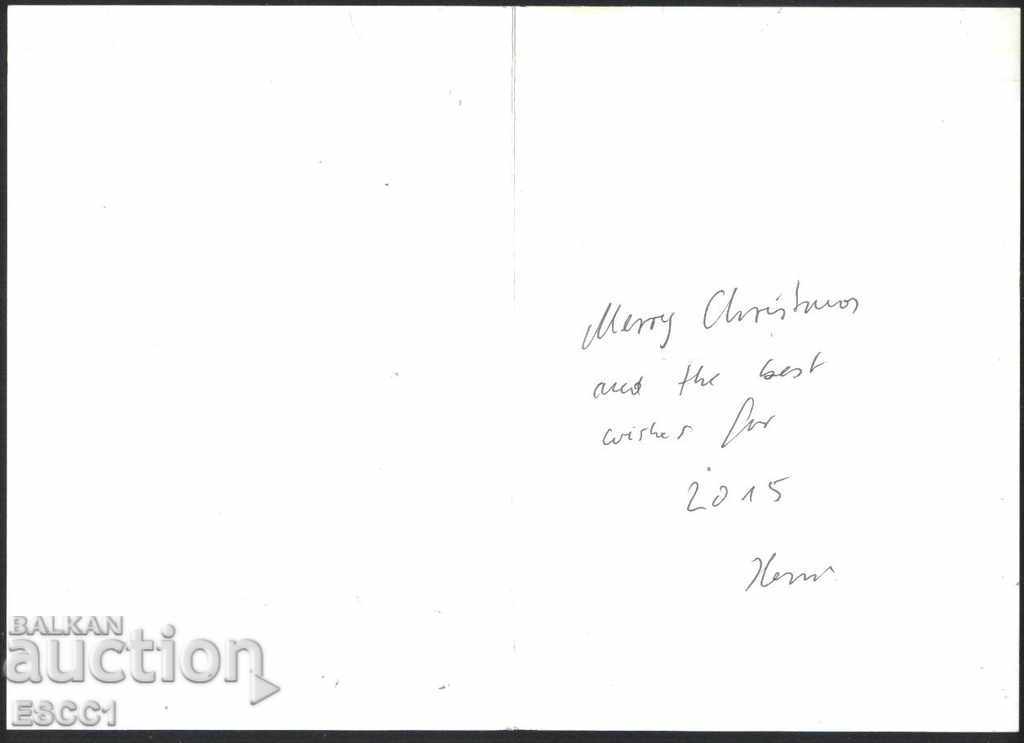 Merry Christmas
and the best
wishes for
2015
BALKAN
auction
ESCC1